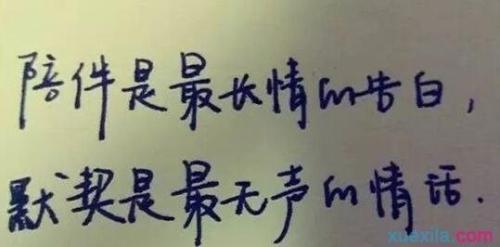 陪件是最长情的告白，
默契是最无声的情话.
xuexila.com